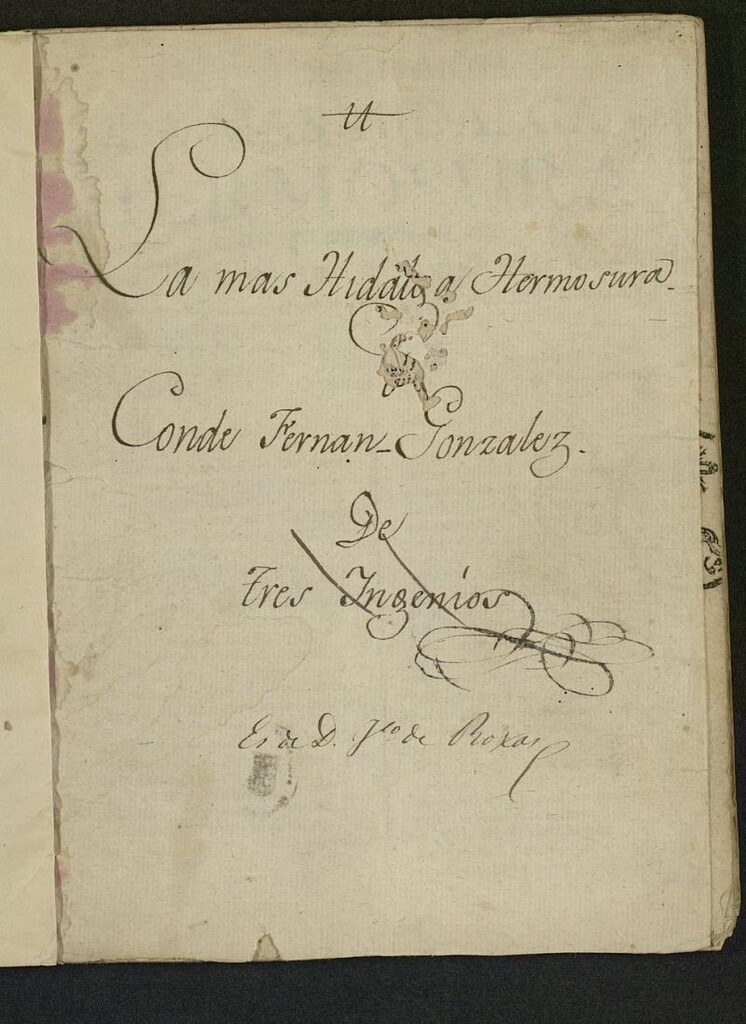 tt
La mas Hidalga Hermosura
Conde Fernan-Gonzalez.
De
Tres Ingenios
Es de D. Fco de Roxas